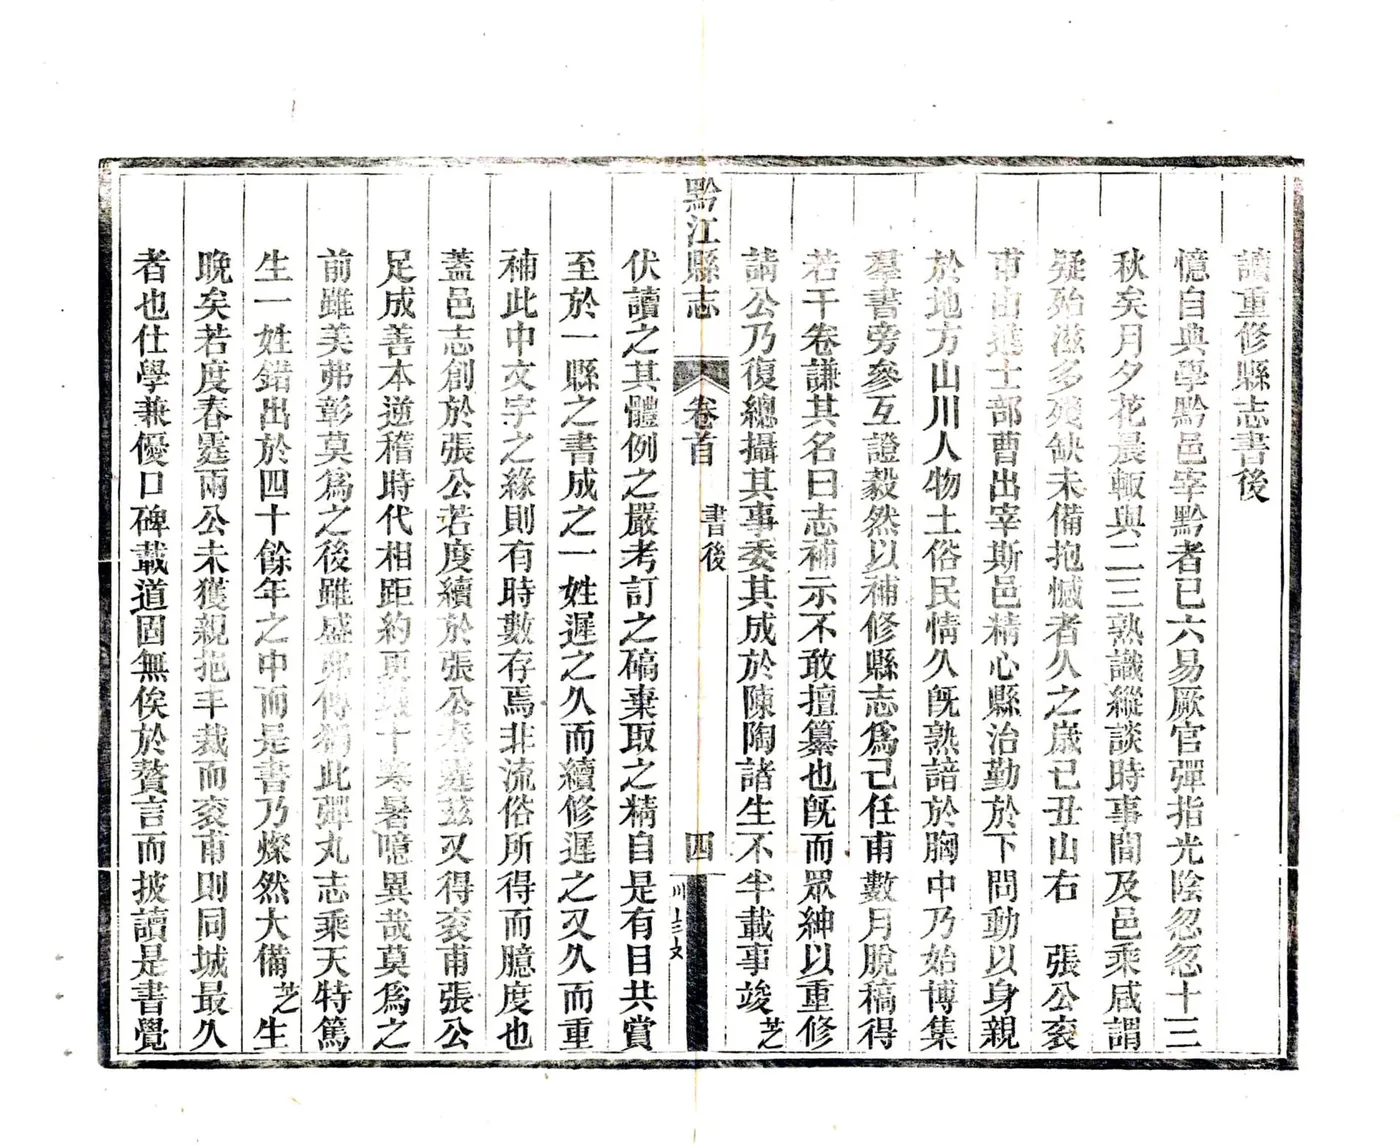 讀重修縣志書後
憶自典學黔邑宰黔者已六易厥官彈指光陰忽忽十三
秋矣月夕花晨輙與二三熟識縱談時事間及邑乘咸謂
疑殆滋多殘缺未備抱憾者久之歲已丑山右　張公衮
甫由進士部曹出宰斯邑精心縣治勤於下問動以身親
於地方山川人物土俗民情久旣熟諳於胸中乃始博集
羣書旁參互證毅然以補修縣志爲己任甫數月脫稿得
若干卷謙其名曰志補示不敢擅纂也旣而眾紳以重修
請公乃復總攝其事委其成於陳陶諸生不半載事竣芝
黔江縣志
卷首
書後
四
伏讀之其體例之嚴考訂之確棄取之精自是有目共賞
至於一縣之書成之一姓遲之久而續修遲之又久而重
補此中文字之緣則有時數存焉非流俗所得而臆度也
蓋邑志創於張公若度續於張公春霆茲又得衮甫張公
足成善本逆稽時代相距約更十寒暑噫異哉莫爲之
前雖美弗彰莫爲之後雖盛弗傳此彈丸志乘天特篤
生一姓錯出於四十餘年之中而是書乃燦然大備芝生
晚矣若度春霆兩公未獲親挹丰裁而衮甫則同城最久
者也仕學兼優口碑載道固無俟於贅言而披讀是書覺